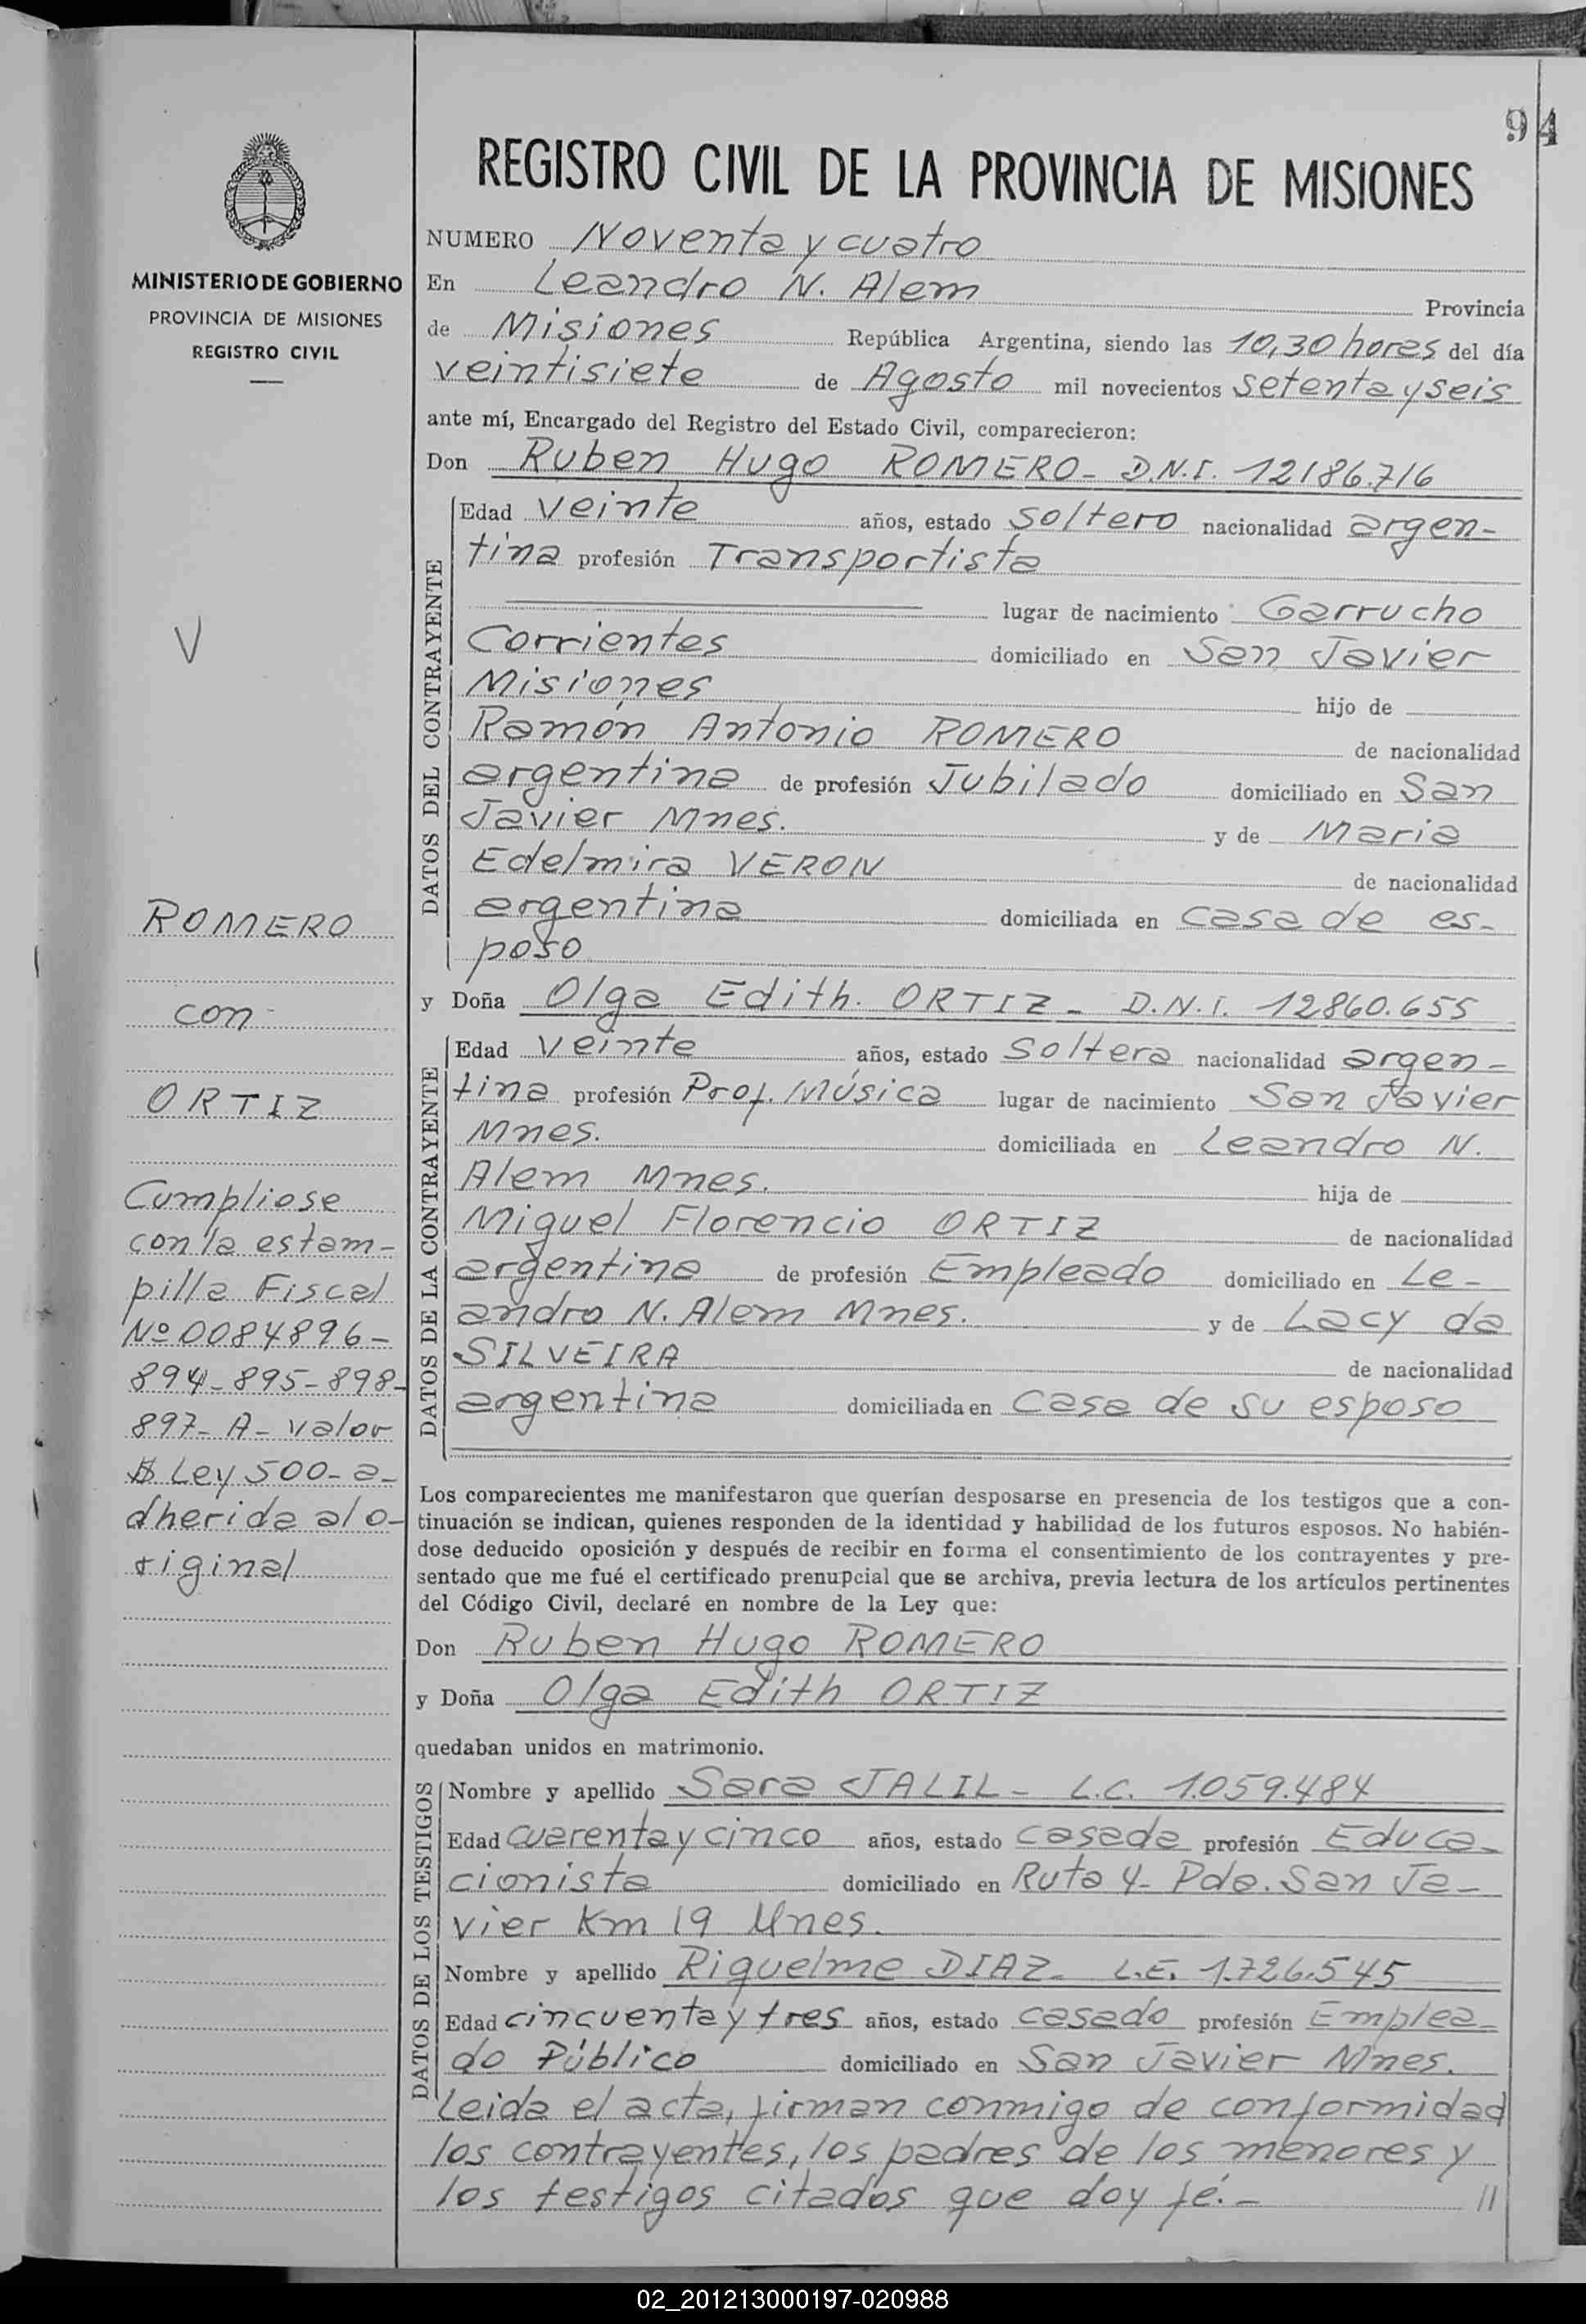 94
REGISTRO CIVIL DE LA PROVINCIA DE MISIONES
MINISTERIO DE GOBIERNO
PROVINCIA DE MISIONES
REGISTRO CIVIL
V
ROMERO
con
ORTIZ
Cumpliose
con la estam-
pilla Fiscal
Nº 0084896-
894-895-898-
897-A-valor
$ Ley 500-a-
dherida al o-
riginal
NUMERO Noventa y cuatro
En Leandro N. Alem Provincia
de Misiones República Argentina, siendo las 10,30 horas del día
veintisiete de Agosto mil novecientos setenta y seis
ante mí, Encargado del Registro del Estado Civil, comparecieron:
Don Ruben Hugo ROMERO- D.N.I. 12186.716
DATOS DEL CONTRAYENTE
Edad veinte años, estado soltero nacionalidad argen-
tina profesión Transportista
lugar de nacimiento Garrucho
Corrientes domiciliado en San Javier
Misiones hijo de
Ramón Antonio ROMERO de nacionalidad
argentina de profesión Jubilado domiciliado en San
Javier Mnes. y de Maria
Edelmira VERON de nacionalidad
argentina domiciliada en casa de es-
poso
y Doña Olga Edith. ORTIZ- D.N.I. 12860.655
DATOS DE LA CONTRAYENTE
Edad veinte años, estado soltera nacionalidad argen-
tina profesión Prof. Música lugar de nacimiento San Javier
Mnes. domiciliada en Leandro N.
Alem Mnes. hija de
Miguel Florencio ORTIZ de nacionalidad
argentina de profesión Empleado domiciliado en Le-
andro N. Alem Mnes. y de Lacy da
SILVEIRA de nacionalidad
argentina domiciliada en casa de su esposo
Los comparecientes me manifestaron que querían desposarse en presencia de los testigos que a con-
tinuación se indican, quienes responden de la identidad y habilidad de los futuros esposos. No habién-
dose deducido oposición y después de recibir en forma el consentimiento de los contrayentes y pre-
sentado que me fué el certificado prenupcial que se archiva, previa lectura de los artículos pertinentes
del Código Civil, declaré en nombre de la Ley que:
Don Ruben Hugo ROMERO
y Doña Olga Edith ORTIZ
quedaban unidos en matrimonio.
DATOS DE LOS TESTIGOS
Nombre y apellido Sara JALIL- L.C. 1.059.484
Edad cuarenta y cinco años, estado casada profesión Educa-
cionista domiciliado en Ruta 4- Pda. San Ja-
vier Km 19 Mnes.
Nombre y apellido Riquelme DIAZ- L.E. 1.726.545
Edad cincuenta y tres años, estado casado profesión Emplea-
do Público domiciliado en San Javier Mnes.
Leida el acta, firman conmigo de conformidad
los contrayentes, los padres de los menores y
los testigos citados que doy fé.- //
02_201213000197-020988